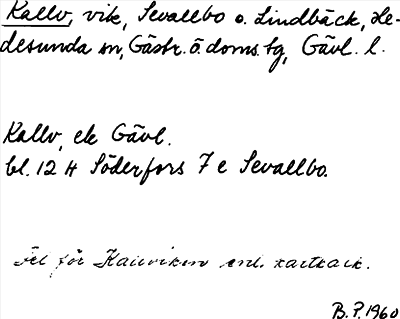 Kallv, vik, Sevallbo o. Lindbäck, He-
desunda sn, Gästr. ö. doms. tg, Gävl. l.
Kallv, ek Gävl.
bl. 12 H Söderfors 7 e Sevallbo.
Fel för Kallviken enl.
B. P. 1960